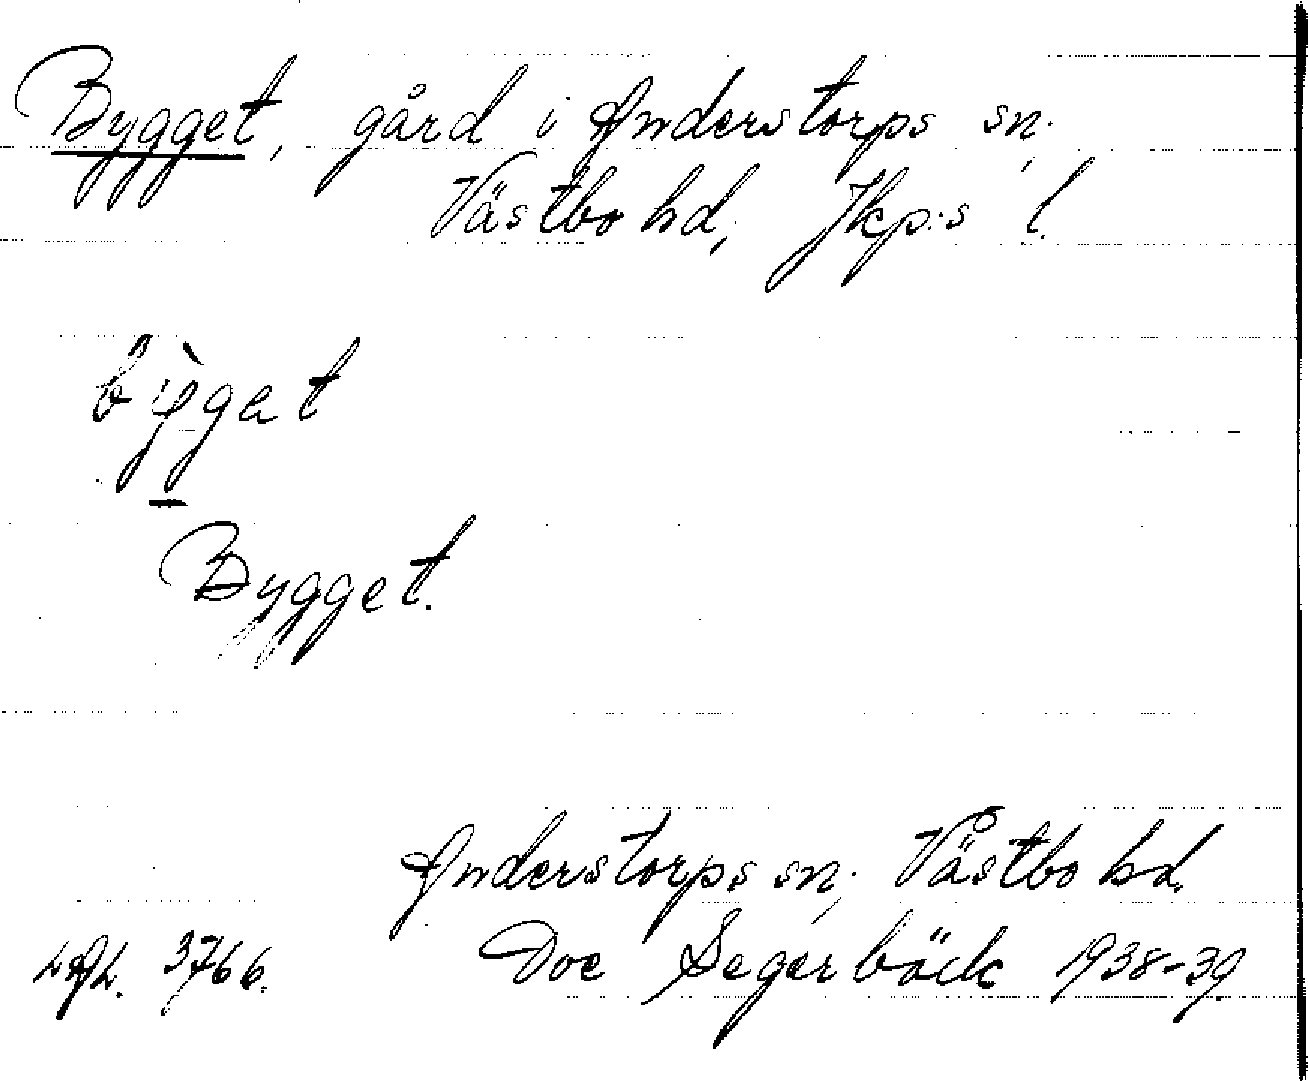 Bygget, gård i Anderstorps sn.,
Västbo hd, Jkp:s l.
bỳgat
Bygget.
Anderstorps sn., Västbo hd.
3766. Doc Segerbäck 1938-39